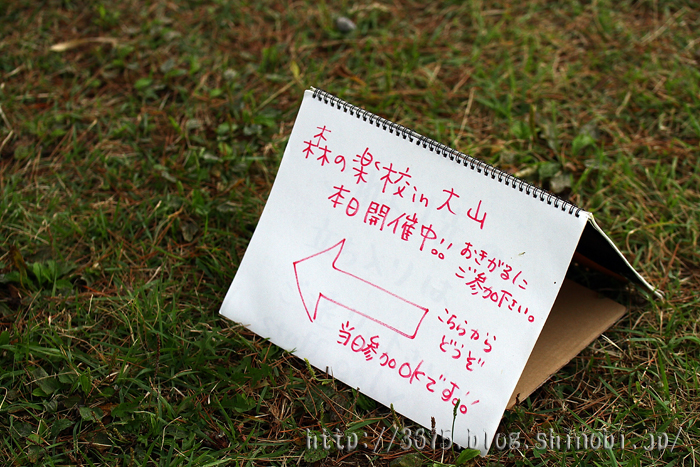 森の楽校in大山
本日開催中!!
おきがるに
ご参加下さい。
こちらから
どうぞ
当日参加OKです!!
http://3375.blog.shinobi.jp/